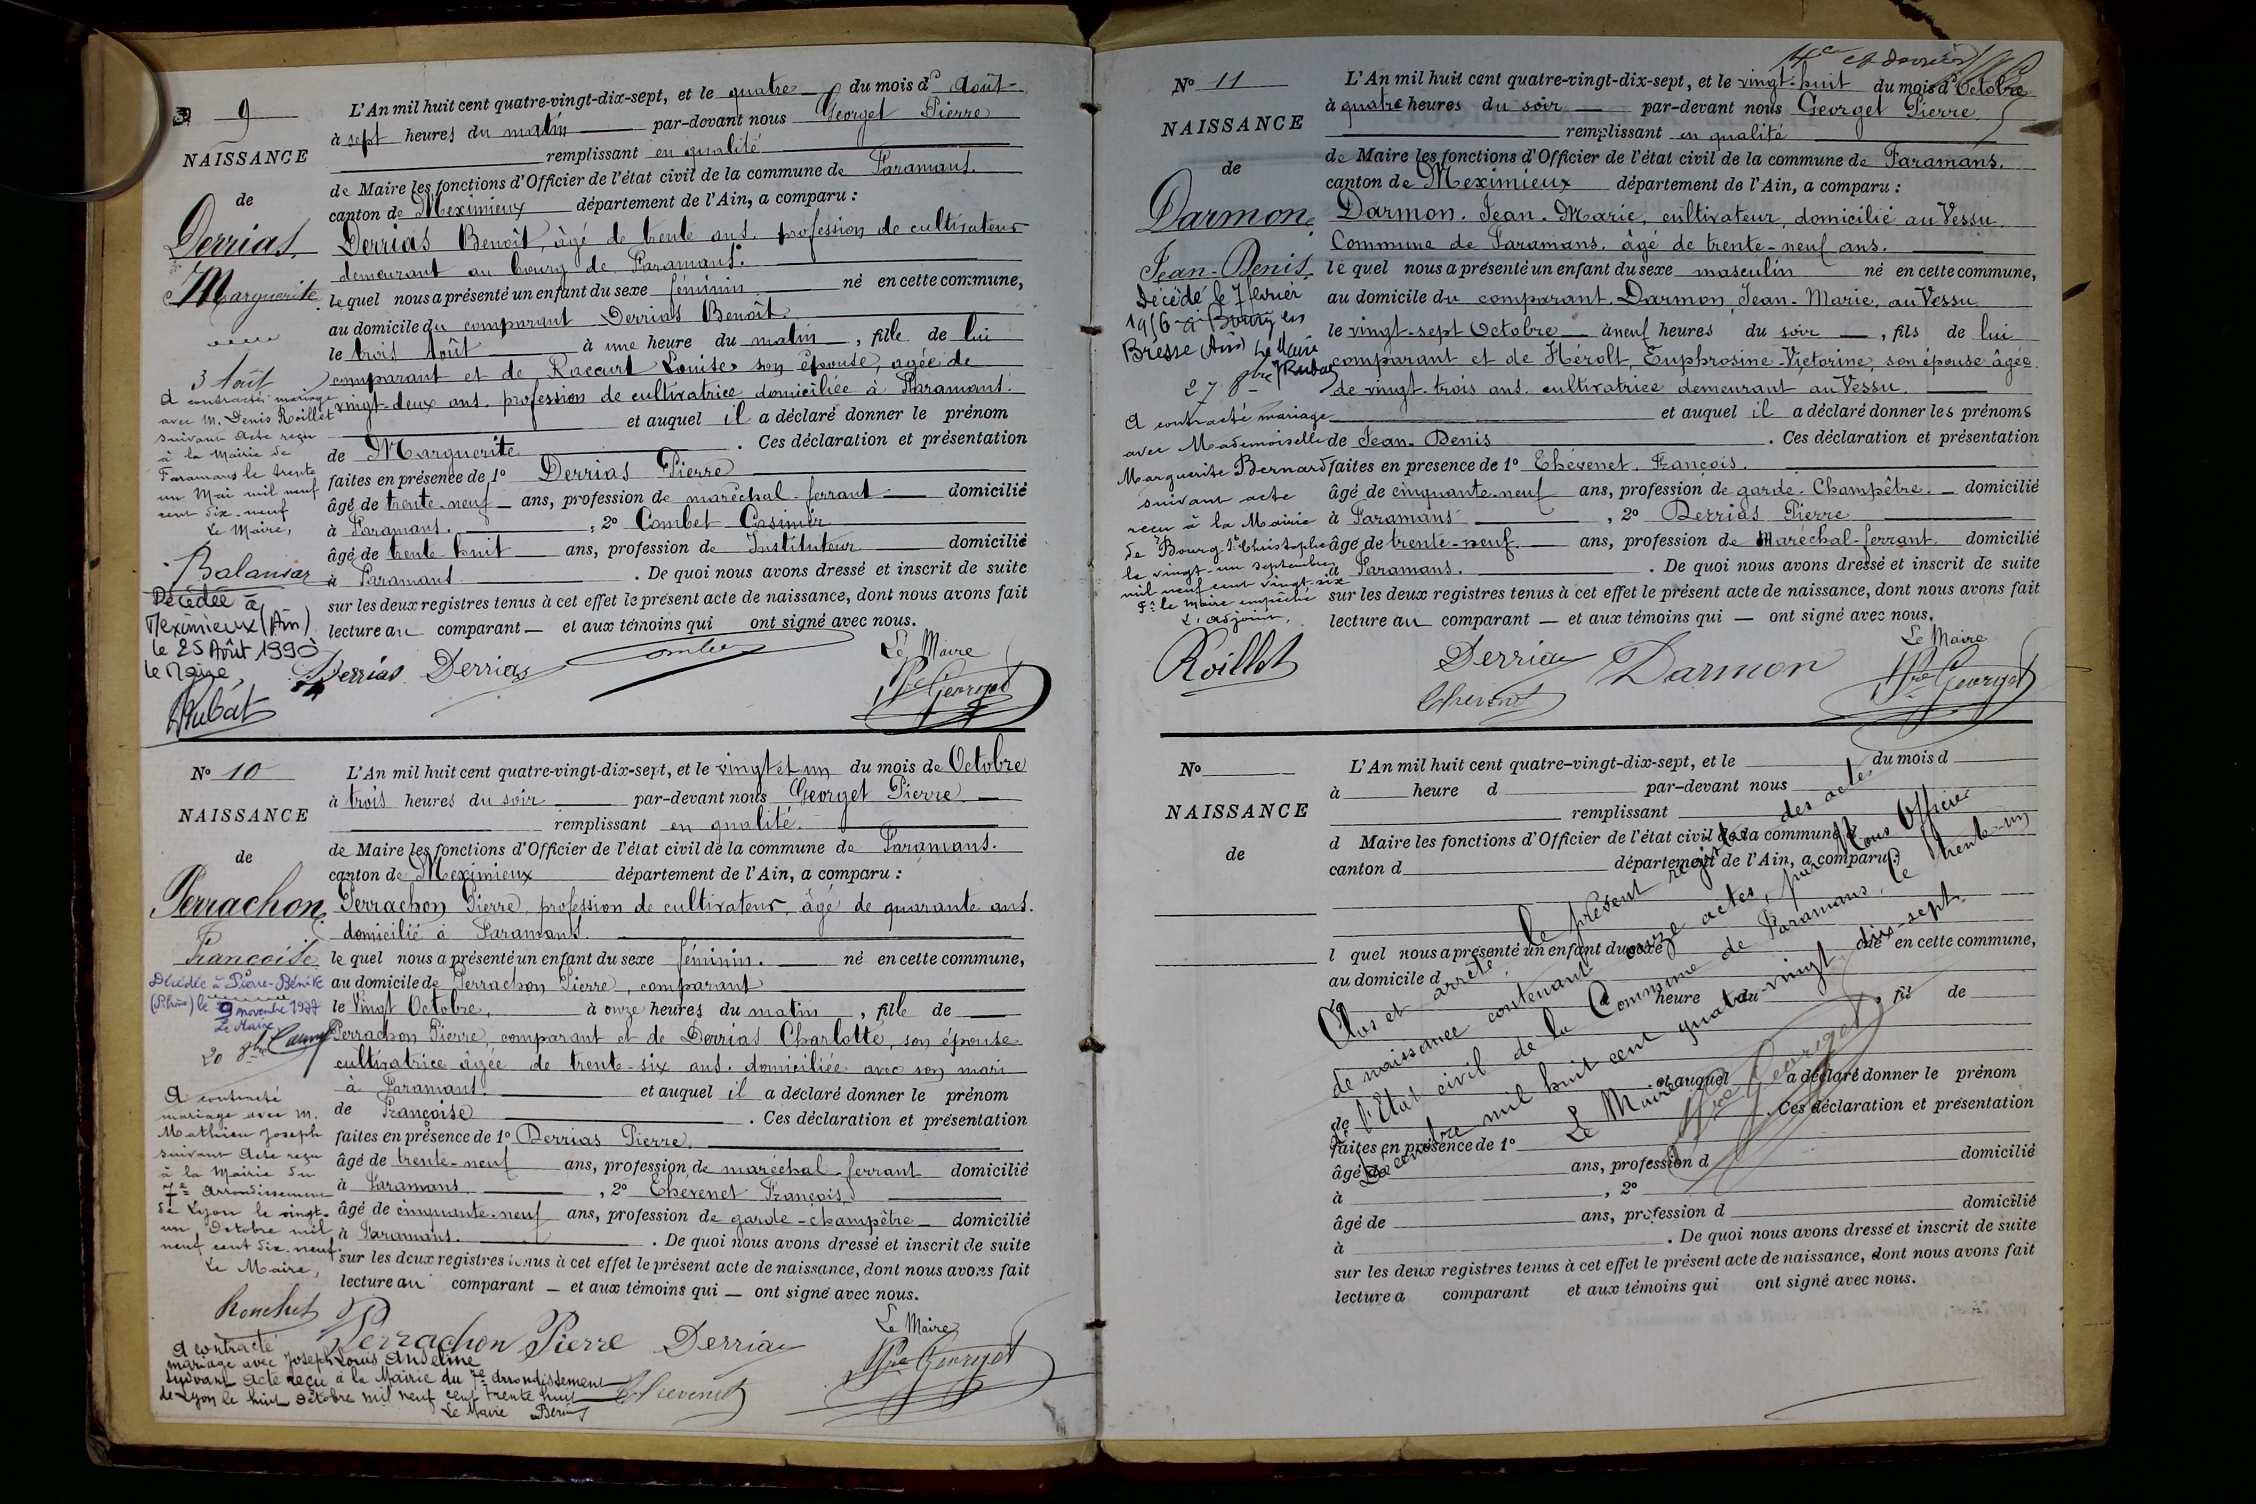 9
NAISSANCE
de
Derrias
Marguerite
3 Août
A contracté mariage
avec M. Denis Roillet
suivant acte reçu
à la Mairie de
Faramans le trente
un Mai mil neuf
cent dix-neuf
Le Maire,
Décédée à
Meximieux (Ain)
le 25 Août 1990
le Maire,
Rubat
L'An mil huit cent quatre-vingt-dix-sept, et le quatre du mois d'Août
à sept heures du matin par-devant nous Georget Pierre
remplissant en qualité
de Maire les fonctions d'Officier de l'état civil de la commune de Faramans.
canton de Meximieux département de l'Ain, a comparu :
Derrias Benoît, âgé de trente ans, profession de cultivateur
demeurant au bourg de Faramans.
lequel nous a présenté un enfant du sexe féminin né en cette commune,
au domicile du comparant Derrias Benoît
le trois Août à une heure du matin, fille de lui
comparant et de Raccurt Louise, son épouse, agée de
vingt-deux ans. profession de cultivatrice domiciliée à Faramans.
et auquel il a déclaré donner le prénom
de Marguerite. Ces déclaration et présentation
faites en présence de 1º Derrias Pierre
âgé de trente-neuf ans, profession de maréchal-ferrant domicilié
à Faramans. , 2º Combet Casimir
âgé de trente huit ans, profession de Instituteur domicilié
à Faramans. De quoi nous avons dressé et inscrit de suite
sur les deux registres tenus à cet effet le présent acte de naissance, dont nous avons fait
lecture au comparant — et aux témoins qui ont signé avec nous.
Derrias Derrias Combet
Le Maire
Pre Georget
Nº 10
NAISSANCE
de
Perrachon
Françoise
Décédée à Pierre-Bénite
(Rhône) le 9 novembre 1977
Le Maire
20 8bre
A contracté
mariage avec M.
Mathieu Joseph
suivant Acte reçu
à la Mairie du
7e Arrondissement
de Lyon le vingt-
un Octobre mil
neuf cent dix-neuf.
Le Maire,
Ronchet
A contracté
mariage avec Joseph Louis Anselme
suivant acte reçu à la Mairie du 7e arrondissement
de Lyon le huit octobre mil neuf cent trente huit
Le Maire
L'An mil huit cent quatre-vingt-dix-sept, et le vingt et un du mois de Octobre
à trois heures du soir par-devant nous Georget Pierre
remplissant en qualité
de Maire les fonctions d'Officier de l'état civil de la commune de Faramans.
canton de Meximieux département de l'Ain, a comparu :
Perrachon Pierre, profession de cultivateur, âgé de quarante ans.
domicilié à Faramans.
le quel nous a présenté un enfant du sexe féminin. né en cette commune,
au domicile de Perrachon Pierre, comparant
le vingt Octobre, à onze heures du matin, fille de
Perrachon Pierre, comparant et de Derrias Charlotte, son épouse
cultivatrice âgée de trente-six ans. domiciliée avec son mari
à Faramans. et auquel il a déclaré donner le prénom
de Françoise. Ces déclaration et présentation
faites en présence de 1º Derrias Pierre
âgé de trente-neuf ans, profession de maréchal-ferrant domicilié
à Faramans , 2º Thévenet François
âgé de cinquante-neuf ans, profession de garde-champêtre domicilié
à Faramans. De quoi nous avons dressé et inscrit de suite
sur les deux registres tenus à cet effet le présent acte de naissance, dont nous avons fait
lecture au comparant — et aux témoins qui — ont signé avec nous.
Perrachon Pierre Derrias
Thevenet
Le Maire
Pre Georget
Nº 11
NAISSANCE
de
Darmon
Jean-Denis
Décédé le 7 février
1956 à Bourg en
Bresse (Ain) Le Maire
Rubat
27 8bre
A contracté mariage
avec Mademoiselle
Marguerite Bernard
suivant acte
reçu à la Mairie
de Bourg St Christophe
le vingt-un septembre
mil neuf cent vingt-six
Pr le Maire empêché
L'adjoint,
Roillet
4e et dernier
L'An mil huit cent quatre-vingt-dix-sept, et le vingt-huit du mois d'Octobre
à quatre heures du soir par-devant nous Georget Pierre
remplissant en qualité
de Maire les fonctions d'Officier de l'état civil de la commune de Faramans.
canton de Meximieux département de l'Ain, a comparu :
Darmon. Jean-Marie, cultivateur, domicilié au Vessu
Commune de Faramans. âgé de trente-neuf ans.
le quel nous a présenté un enfant du sexe masculin né en cette commune,
au domicile du comparant Darmon Jean-Marie, au Vessu
le vingt-sept Octobre à neuf heures du soir, fils de lui
comparant et de Hérolt Euphrosine-Victorine, son épouse âgée
de vingt-trois ans. cultivatrice demeurant au Vessu
et auquel il a déclaré donner les prénoms
de Jean-Denis. Ces déclaration et présentation
faites en presence de 1º Thévenet. François.
âgé de cinquante-neuf ans, profession de garde-Champêtre. domicilié
à Faramans , 2º Derrias Pierre
âgé de trente-neuf. ans, profession de Maréchal-ferrant domicilié
à Faramans. De quoi nous avons dressé et inscrit de suite
sur les deux registres tenus à cet effet le présent acte de naissance, dont nous avons fait
lecture au comparant — et aux témoins qui — ont signé avec nous.
Derrias Darmon
Thevenet
Le Maire
Pre Georget
Nº
NAISSANCE
de
L'An mil huit cent quatre-vingt-dix-sept, et le du mois d
à heure d par-devant nous
remplissant
d Maire les fonctions d'Officier de l'état civil de la commune d
canton d département de l'Ain, a comparu :
l quel nous a présenté un enfant du sexe né en cette commune,
au domicile d
le à heure du , fil de
et auquel a déclaré donner le prénom
de . Ces déclaration et présentation
faites en présence de 1º
âgé de ans, profession d domicilié
à , 2º
âgé de ans, profession d domicilié
à . De quoi nous avons dressé et inscrit de suite
sur les deux registres tenus à cet effet le présent acte de naissance, dont nous avons fait
lecture a comparant et aux témoins qui ont signé avec nous.
Clos et arrêté, le présent registre des actes
de naissance contenant onze actes, par Nous Officier
de l'Etat civil de la Commune de Faramans, le trente-un
Décembre mil huit cent quatre-vingt dix-sept.
Le Maire
Pre Georget